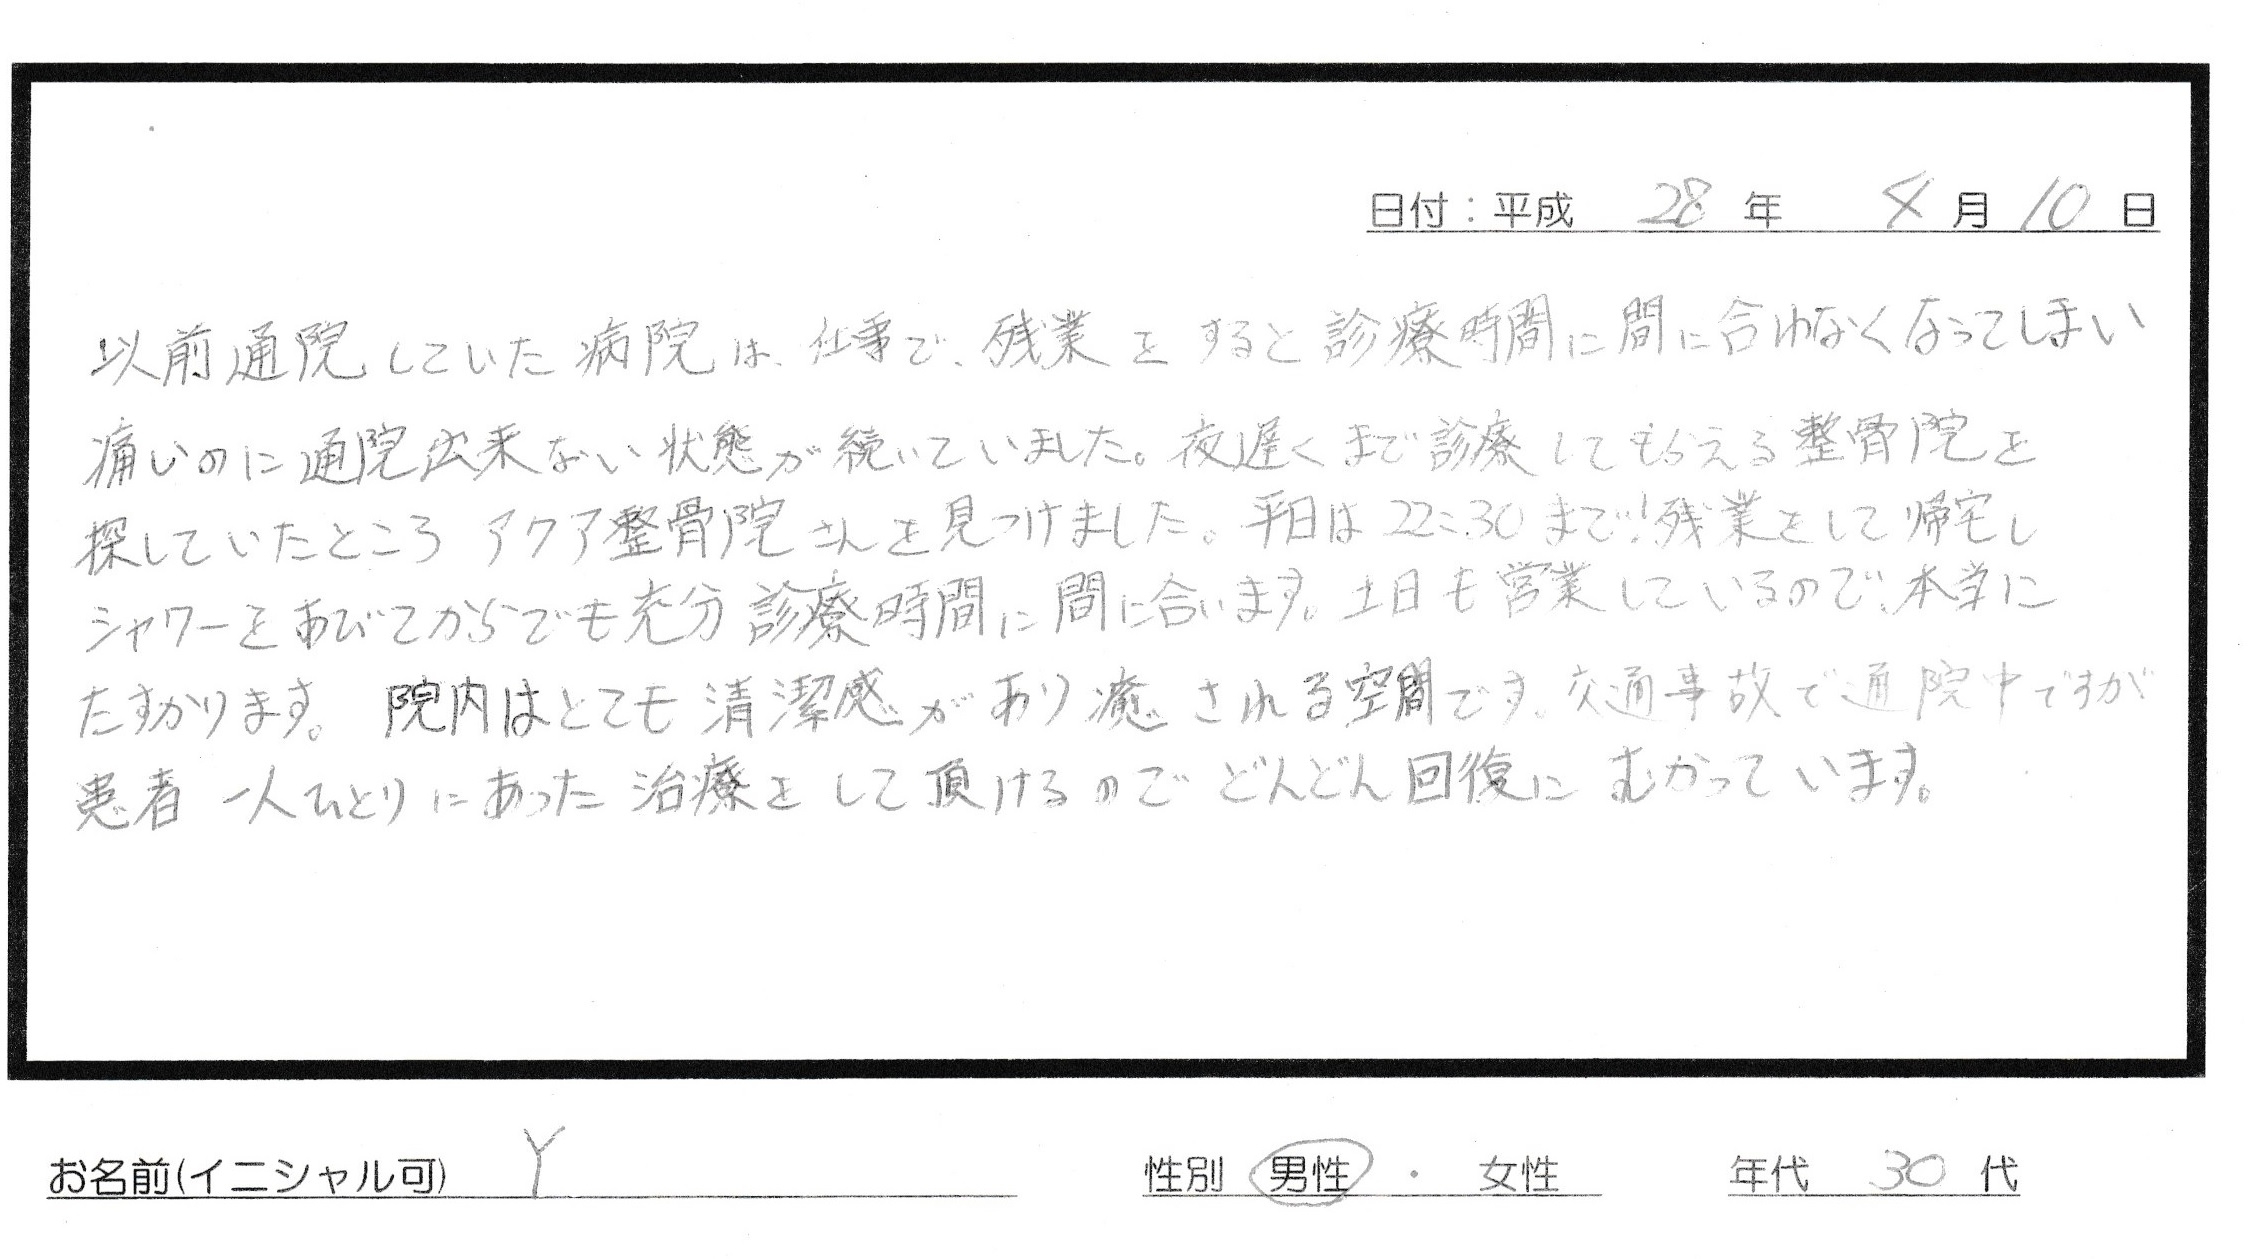 日付：平成 28 年 8 月 10 日
以前通院していた病院は、仕事で、残業をすると診療時間に間に合わなくなってしまい
痛いのに通院出来ない状態が続いていました。夜遅くまで診療してもらえる整骨院を
探していたところ アクア整骨院さんを見つけました。平日は22:30まで!残業をして帰宅し
シャワーをあびてからでも充分診療時間に間に合います。土日も営業しているので、本当に
たすかります。 院内はとても清潔感があり癒される空間です。交通事故で通院中ですが
患者一人ひとりにあった治療をして頂けるのでどんどん回復にむかっています。
お名前(イニシャル可) Y 性別 男性 ・ 女性 年代 30 代